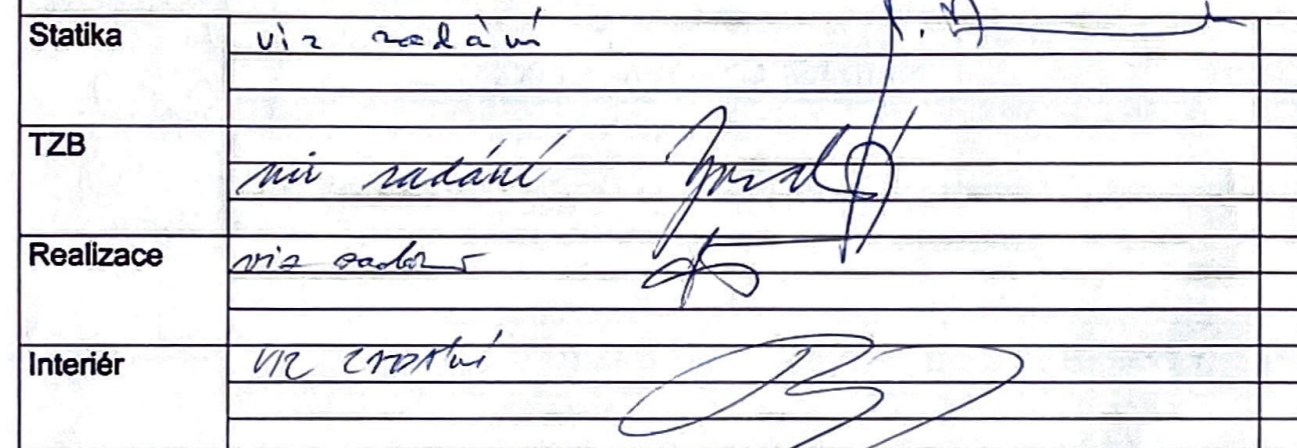 Statika viz zadání
TZB viz zadání
Realizace viz zadání
Interiér viz zadání